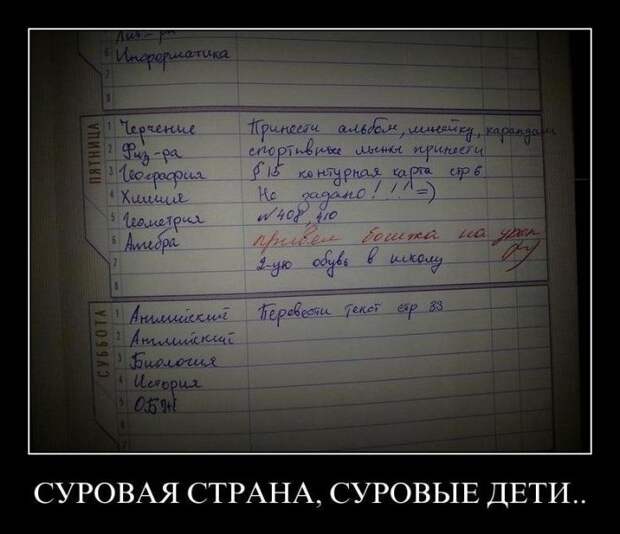 Лит-ра
6 Информатика
7
8
ПЯТНИЦА
1 Черчение Принести альбом, линейку, карандаш
2 Физ-ра спортивные лыжи принести
3 География § 15 контурная карта стр 6
4 Химия Не задано! !! =)
5 Геометрия №408, 410
6 Алгебра привёл бомжа на урок
7 2-ую обувь в школу
8
СУББОТА
1 Английский Перевести текст стр 33
2 Английский
3 Биология
4 История
5 ОБЖ
6
7
СУРОВАЯ СТРАНА, СУРОВЫЕ ДЕТИ..